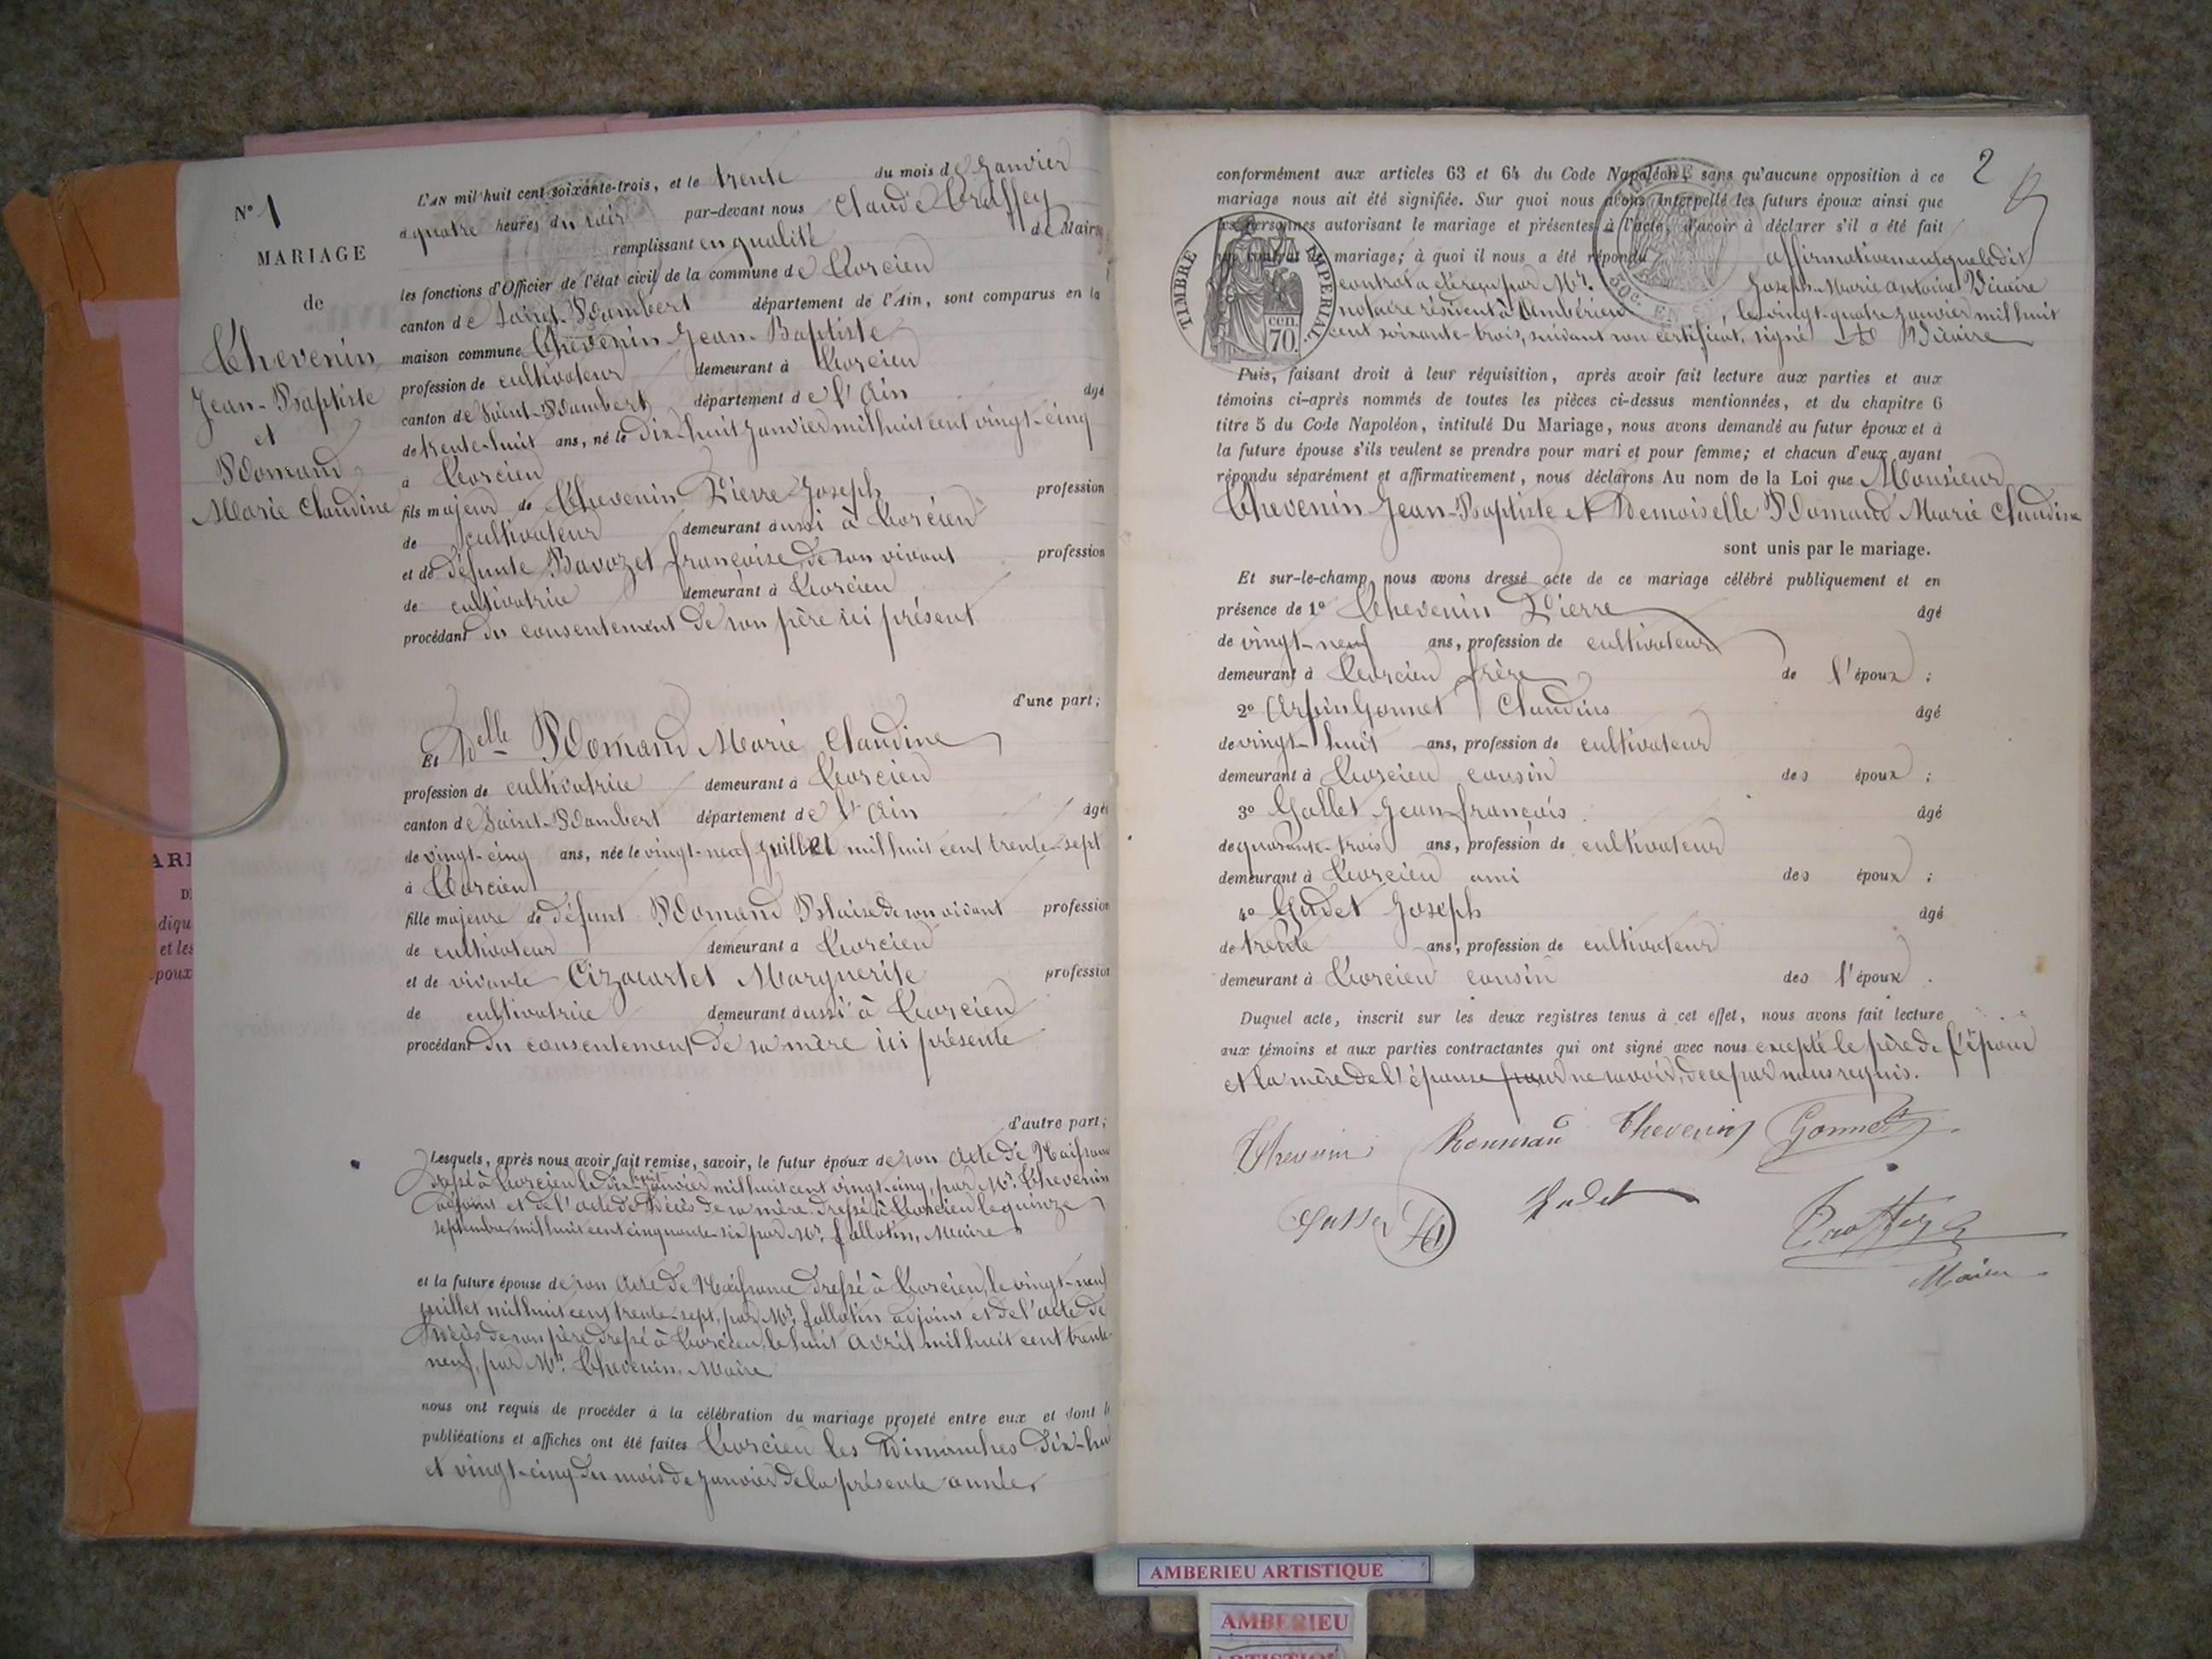 N° 1
MARIAGE
de
Thevenin
Jean-Baptiste
et
Romand
Marie Claudine
L'AN mil huit cent soixante-trois, et le trente du mois de Janvier
à quatre heures du soir par-devant nous Claude
remplissant en qualité de Maire
les fonctions d'Officier de l'état civil de la commune de Torcieu
canton de Saint-Rambert département de l'Ain, sont comparus en la
maison commune Thevenin Jean-Baptiste
profession de cultivateur demeurant à Torcieu
canton de Saint-Rambert département de l'Ain âgé
de trente-huit ans, né le dix-huit Janvier mil huit cent vingt-cinq
à Torcieu
fils majeur de Thevenin Pierre Joseph profession
de cultivateur demeurant aussi à Torcieu
et de défunte Bavozet françoise, de son vivant profession
de cultivatrice demeurant à Torcieu
procédant du consentement de son père ici présent
d'une part;
Et Delle Romand Marie Claudine
profession de cultivatrice demeurant à Torcieu
canton de Saint-Rambert département de l'Ain âgée
de vingt-cinq ans, née le vingt-neuf Juillet mil huit cent trente-sept
à Torcieu
fille majeure de défunt Romand Blaise de son vivant profession
de cultivateur demeurant à Torcieu
et de vivante Marguerite profession
de cultivatrice demeurant aussi à Torcieu
procédant du consentement de sa mère ici présente
d'autre part;
Lesquels, après nous avoir fait remise, savoir, le futur époux de son Acte de Naissance
dressé à Torcieu le dix-huit Janvier mil huit cent vingt-cinq, par Mr. Thevenin
adjoint et de l'acte de Décès de sa mère dressé à Torcieu le quinze
septembre mil huit cent cinquante-six par Mr. follotin, Maire
et la future épouse de son Acte de Naissance dressé à Torcieu, le vingt-neuf
juillet mil huit cent trente-sept, par Mr. follotin adjoint et de l'acte de
Décès de son père dressé à Torcieu, le huit Avril mil huit cent trente-
neuf, par Mr. Thevenin, Maire
nous ont requis de procéder à la célébration du mariage projeté entre eux et dont l
publications et affiches ont été faites Torcieu les Dimanches Dix-hu
et vingt-cinq du mois de Janvier de la présente année,
2
conformément aux articles 63 et 64 du Code Napoléon, sans qu'aucune opposition à ce
mariage nous ait été signifiée. Sur quoi nous avons interpellé les futurs époux ainsi que
les personnes autorisant le mariage et présentes à l'acte, d'avoir à déclarer s'il a été fait
un contrat de mariage; à quoi il nous a été répondu affirmativement que ledit
contrat a été reçu par Mr. Joseph-Marie Antoine Vicaire
notaire résident à Ambérieu, le vingt-quatre Janvier mil huit
cent soixante-trois, suivant son certificat, signé Vicaire
TIMBRE IMPERIAL
70 cen.
50c. EN
Puis, faisant droit à leur réquisition, après avoir fait lecture aux parties et aux
témoins ci-après nommés de toutes les pièces ci-dessus mentionnées, et du chapitre 6
titre 5 du Code Napoléon, intitulé Du Mariage, nous avons demandé au futur époux et à
la future épouse s'ils veulent se prendre pour mari et pour femme; et chacun d'eux ayant
répondu séparément et affirmativement, nous déclarons Au nom de la Loi que Monsieur
Thevenin Jean-Baptiste et Demoiselle Romand Marie Claudine
sont unis par le mariage.
Et sur-le-champ nous avons dressé acte de ce mariage célébré publiquement et en
présence de 1° Thevenin Pierre âgé
de vingt-neuf ans, profession de cultivateur
demeurant à Torcieu frère de l'époux ;
2° Arpin Gonnet Claudius âgé
de vingt-huit ans, profession de cultivateur
demeurant à Torcieu cousin des époux ;
3° Gallet Jean-françois âgé
de quarante-trois ans, profession de cultivateur
demeurant à Torcieu ami des époux ;
4° Gudet Joseph âgé
de trente ans, profession de cultivateur
demeurant à Torcieu cousin des l'époux .
Duquel acte, inscrit sur les deux registres tenus à cet effet, nous avons fait lecture
aux témoins et aux parties contractantes qui ont signé avec nous excepté le père de l'époux
et la mère de l'épouse pour ne savoir, de ce par nous requis.
Thevenin Romand Thevenin Gonnet
Gudet
Maire
AMBERIEU ARTISTIQUE
AMBERIEU
ARTISTIQUE